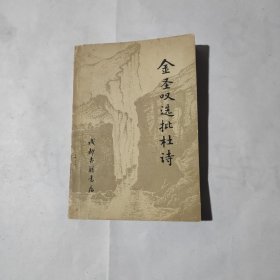 金圣叹选批杜诗
成都古籍书店